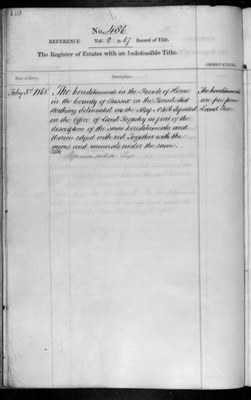 410
No. 486.
REFERENCE Vol. 2 67 Record of Title.
The Register of Estates with an Indefeasible Title.
OBSERVATIONS.
Date of Entry.
Description.
Feby 3rd 1868 The hereditaments in the Parish of Heene The hereditaments
in the County of Sussex on the Road
are free from
nothing delineated on the Map deposited
Land Tax
in the Office of Land Registry as part of the
description of the same hereditaments and
thereon edged with red Together with the
mines and minerals under the same.